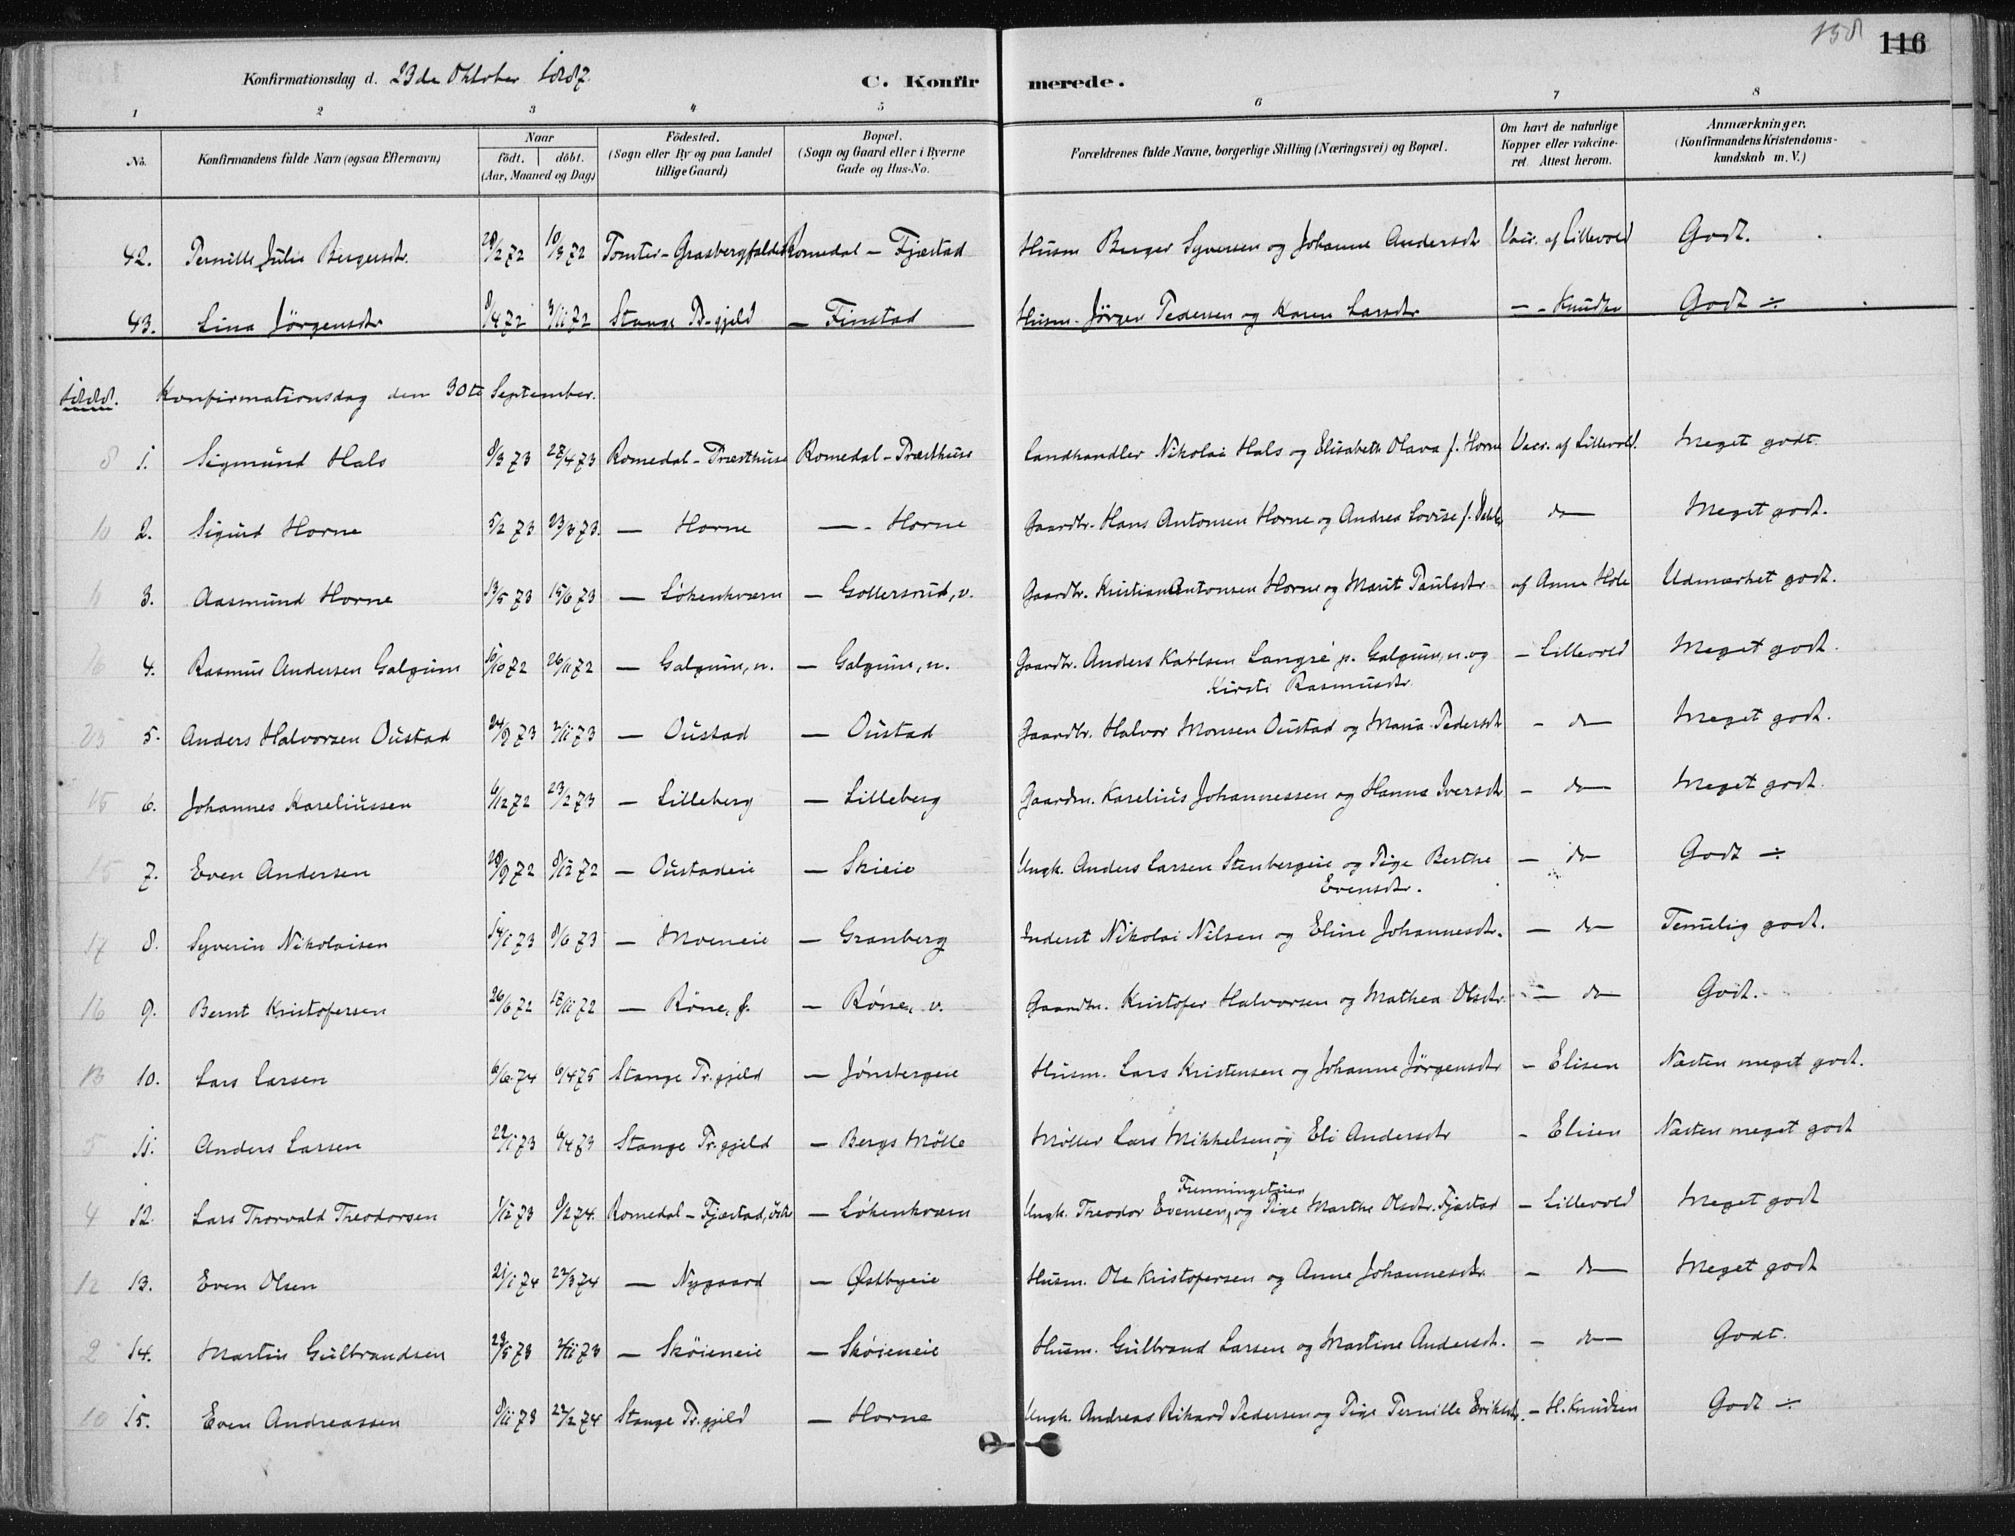 158 116
Konfirmationsdag d. 23de Oktober 1887. C. Konfirmerede.
1 2 3 4 5 6 7 8
No. Konfirmandens fulde Navn (ogsaa Efternavn) Naar födt. döbt. (Aar, Maaned og Dag) Födested. (Sogn eller By og paa Landet tillige Gaard) Bopæl. (Sogn og Gaard eller i Byerne Gade og Hus-No. Forældrenes fulde Navne, borgerlige Stilling (Næringsvei) og Bopæl. Om havt de naturlige Kopper eller vakcineret. Attest herom. Anmærkninger. (Konfirmandens Kristendomskundskab m. V.)
42. Pernille Julie Bergersdr. 28/2 72 10/3 72 Tomter - Grasbergfaldet Romedal - Fjæstad Husm Berger Syversen og Johanne Andersdr Vacr. af Lillevold Godt.
43. Lina Jörgensdr 8/4 72 3/11 72 Stange Pr.gjeld — Finstad Husm. Jörgen Pedersen og Karen Larsdr — - Knudsen Godt ÷
1888. Konfirmationsdag den 30te September.
8 1. Sigmund Hals 8/3 73 27/4 73 Romedal - Præsthuse Romedal - Præsthuse Landhandler Nikolai Hals og Elisabeth Olava f. Horne Vacr. af Lillevold. Meget godt.
10 2. Sigurd Horne 5/2 73 23/3 73. — Horne — - Horne Gaardbr. Hans Antonsen Horne og Andrea Lovise f. Dahl do Meget godt.
6 3. Aasmund Horne 13/5 73 15/6 73 — Lökenkværn — Gollersrud, v. Gaardbr. Kristian Antonsen Horne og Marit Paulsdr af Anne Hole Udmærket godt.
16 4. Rasmus Andersen Galgum 15/10 72 26/11 72 — Galgum, n. — Galgum, n. Gaardbr. Anders Karlsen Langré p. Galgum, n. og Kirsti Rasmusdr. - Lillevold Meget godt.
23 5. Anders Halvorsen Oustad 24/9 73 2/11 73 — Oustad — Oustad Gaardbr. Halvor Monsen Oustad og Maria Pedersdr - do Meget godt.
15 6. Johannes Kareliussen 6/12 72 23/2 73 — Lilleberg — Lilleberg Gaardm. Karelius Johannessen og Hanna Iversdr - do Meget godt.
15 7. Even Andersen 28/9 72 8/12 72 — Oustadeie — Skieie Ungk. Anders Larsen Stenbergeie og Pige Berthe Evensdr. - do Godt ÷
17 8. Syverin Nikolaisen 14/1 73 8/6 73 — Moeneie — Granberg Inderst Nikolai Nilsen og Eline Johannesdr. - do Temelig godt.
16 9. Bernt Kristofersen 26/6 72 17/11 72 — Röne, f. — Röne, v. Gaardm. Kristofer Halvorsen og Mathea Olsdr. - do Godt.
13 10. Lars Larsen 6/6 74 6/4 75 Stange Pr.gjeld — Jönsbergeie Husm. Lars Kristensen og Johanne Jörgensdr - Elisen Næsten meget godt.
5 11. Anders Larsen 22/1 73 6/4 73 Stange Pr.gjeld — Bergs Mölle Möller Lars Mikkelsen og Eli Andersdr - Elisen Næsten meget godt
4 12. Lars Thorvald Theodorsen 1/12 73 8/2 74. Romedal - Fjæstad, östre — Lökenkværn Ungk. Theodor Evensen, og Pige Marthe Olsdr. Fjæstad - Lillevold Meget godt
12 13. Even Olsen 21/1 74 22/3 74 — Nygaard — Østbyeie Husm. Ole Kristofersen og Anne Johannesdr. - do Meget godt
2 14. Martin Gulbrandsen 29/5 73 2/11 73 — Sköieneie — Sköieneie Husm. Gulbrand Larsen og Martine Andersdr. - do Godt.
10 15. Even Andreassen 8/11 73 22/2 74 Stange Pr.gjeld — Horne Ungk. Andreas Rikard Pedersen og Pige Pernille Eriksdr. - H. Knudsen Godt ÷